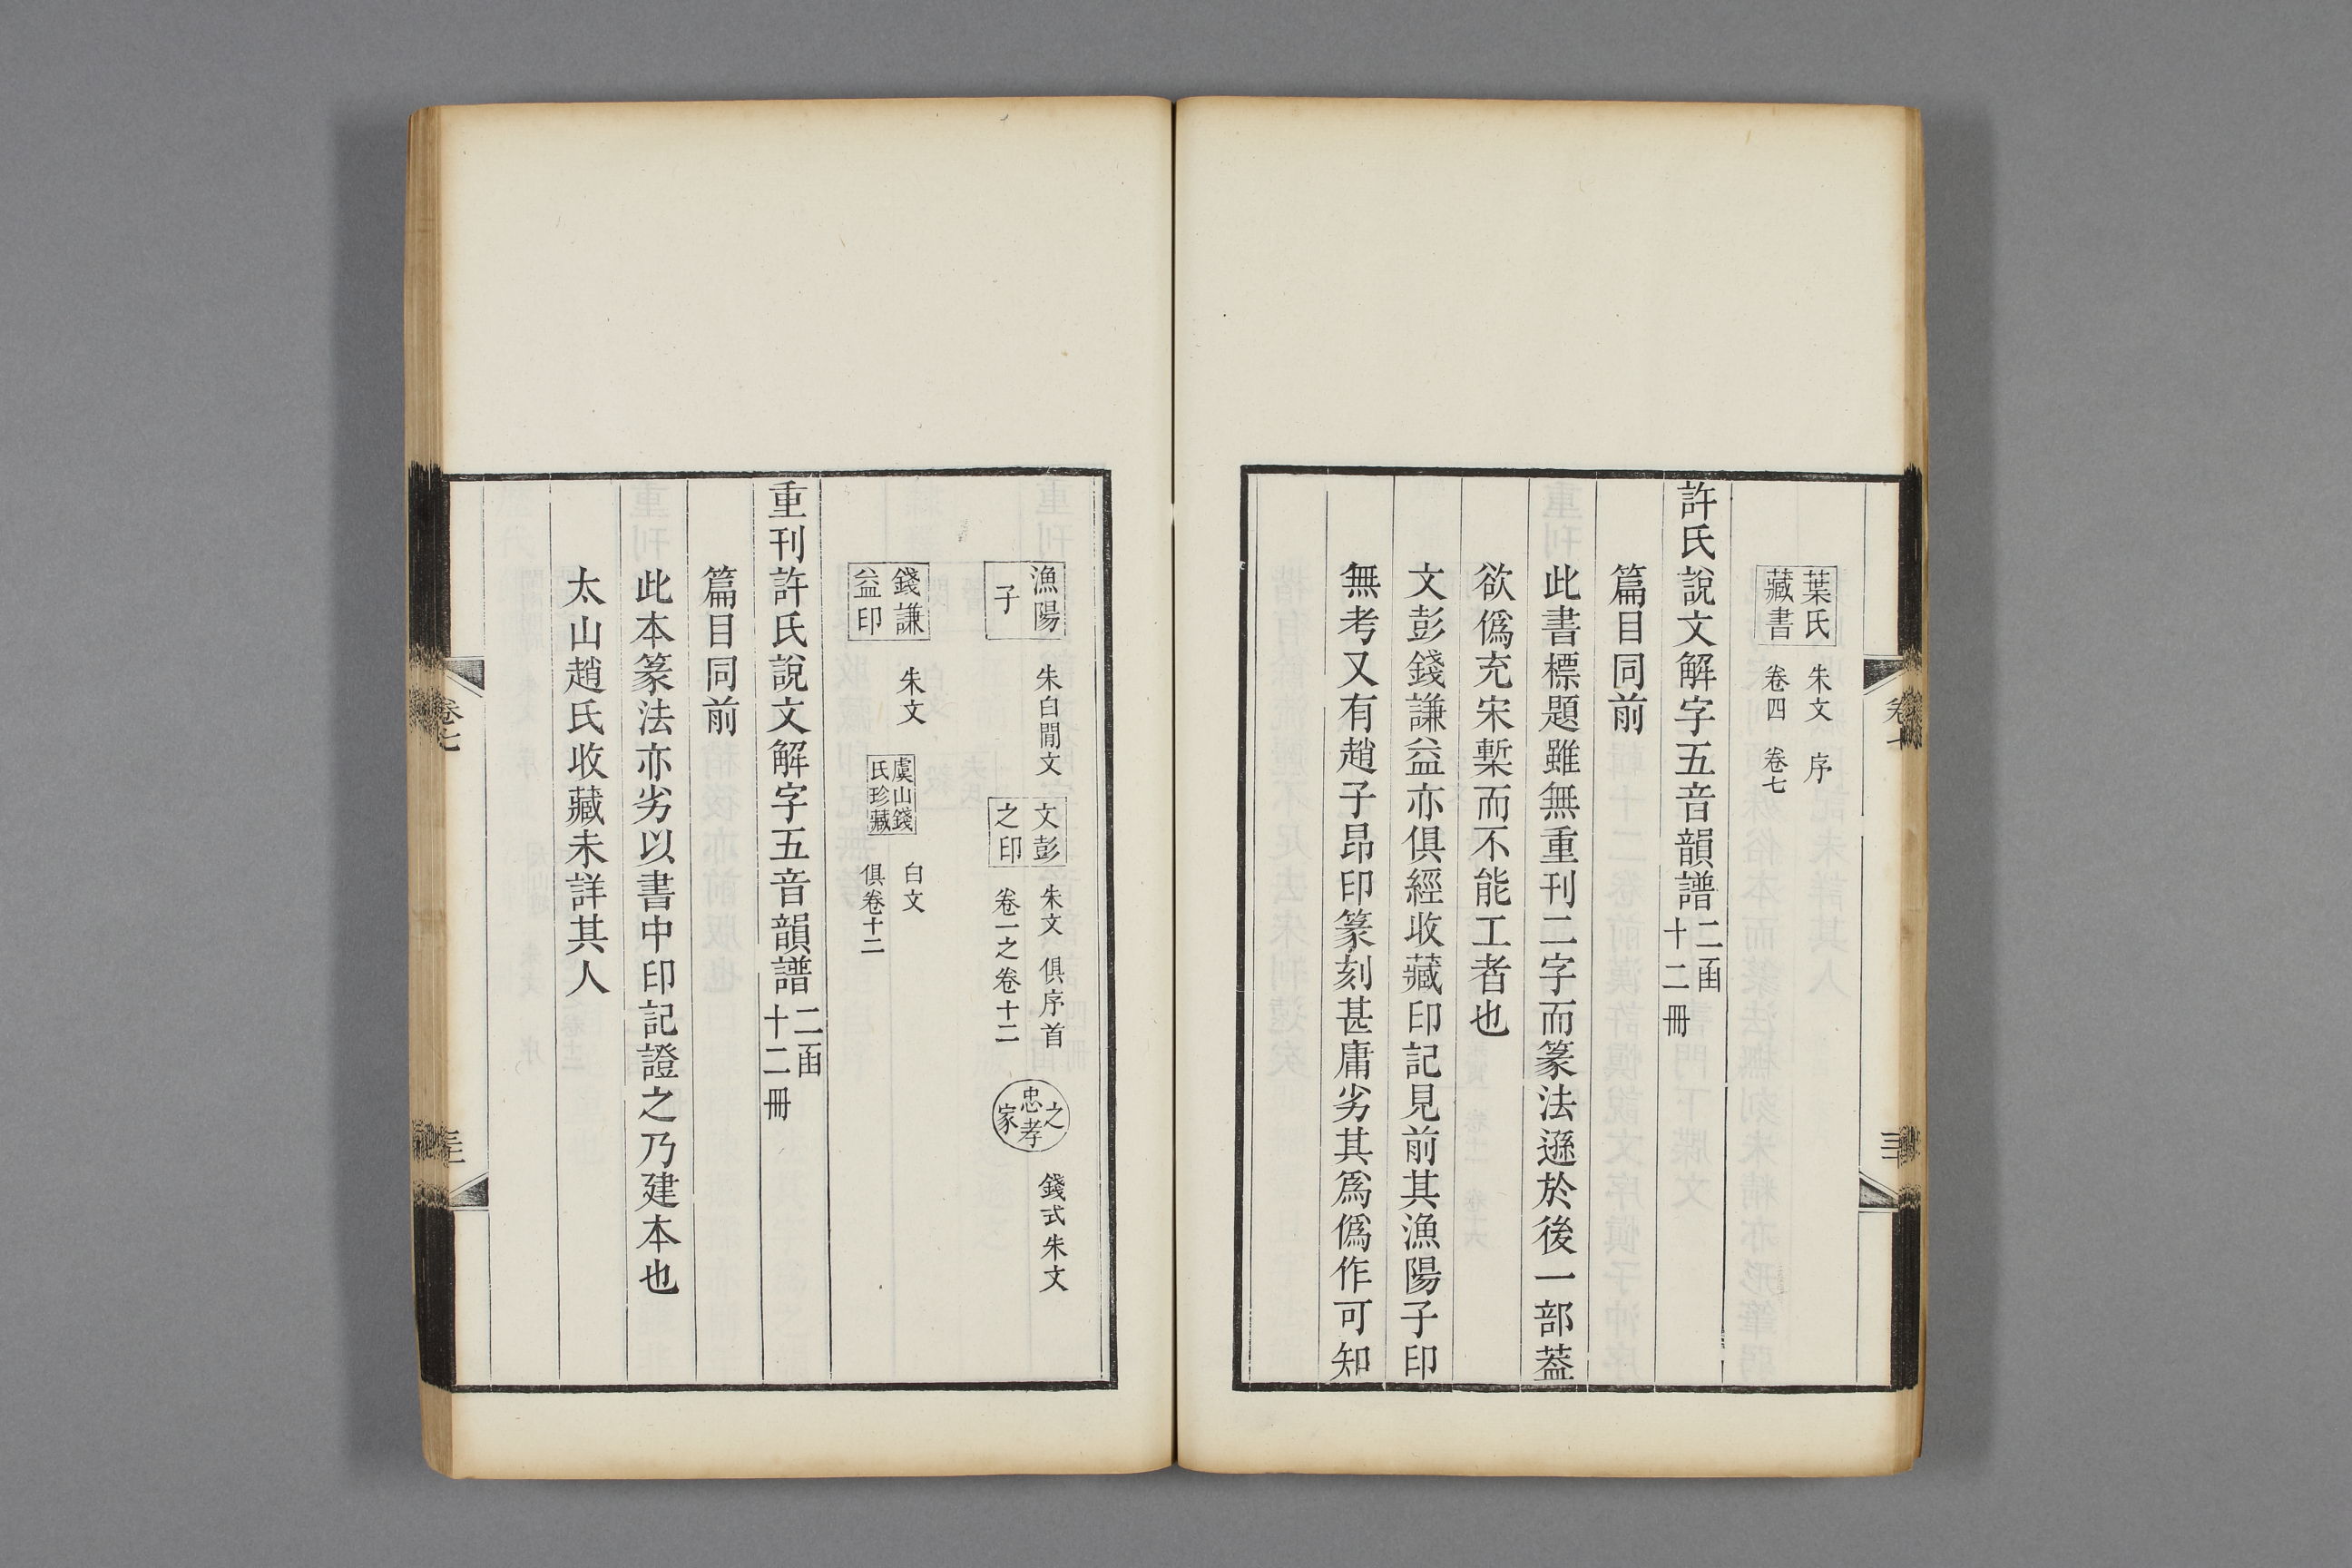 葉氏藏書
朱文 序
卷四 卷七
許氏說文解字五音韻譜二函十二冊
篇目同前
此書標題雖無重刊二字而篆法遜於後一部葢
欲僞充宋槧而不能工者也
文彭錢謙益亦俱經收藏印記見前其漁陽子印
無考又有趙子昂印篆刻甚庸劣其爲僞作可知
漁陽子
朱白閒文
文彭之印
朱文 俱序首
卷一之卷十二
忠孝之家
錢式朱文
錢謙益印
朱文
虞山錢氏珍藏
白文
俱卷十二
重刊許氏說文解字五音韻譜二函十二冊
篇目同前
此本篆法亦劣以書中印記證之乃建本也
太山趙氏收藏未詳其人
卷七